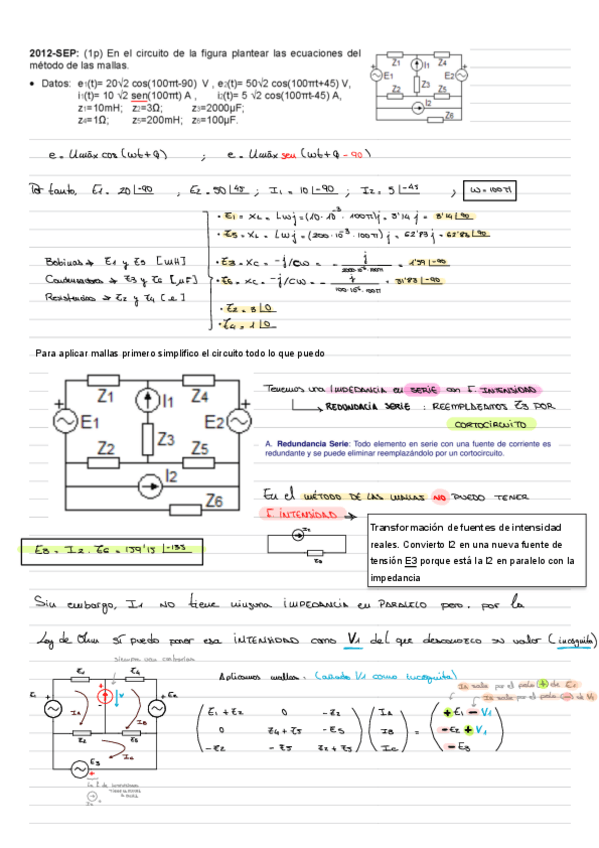 2012-SEP: (1p) En el circuito de la figura plantear las ecuaciones del
método de las mallas.
• Datos: e₁(t)= 20√2 cos(100πt-90) V , e₂(t)= 50√2 cos(100πt+45) V,
i₁(t)= 10 √2 sen(100πt) A , i₂(t)= 5 √2 cos(100πt-45) A,
z₁=10mH; z₂=3Ω; z₃=2000µF;
z₄=1Ω; z₅=200mH; z₆=100µF.
Z1 I1 Z4
E1 E2
Z3
Z2 Z5
I2
Z6
e = Umáx cos (ωt+φ) ; e = Umáx sen (ωt+φ -90)
Por tanto, E1 = 20|-90 , E2 = 50|45 ; I1 = 10|-90 ; I2 = 5|-45 , ω=100π
Bobinas → Z1 y Z5 [mH]
Condensadores → Z3 y Z6 [µF]
Resistencias → Z2 y Z4
• Z1 = XL = Lωj = (10·10⁻³·100π)j = 3'14j = 3'14|90
• Z5 = XL = Lωj = (200·10⁻³·100π)j = 62'83j = 62'83|90
• Z3 = XC = -j/Cω = - j/2000·10⁻⁶·100π = 1'59|-90
• Z6 = XC = -j/Cω = - j/100·10⁻⁶·100π = 31'83|-90
• Z2 = 3|0
• Z4 = 1|0
Para aplicar mallas primero simplifico el circuito todo lo que puedo
Z1 I1 Z4
E1 E2
Z3
Z2 Z5
I2
Z6
Tenemos una IMPEDANCIA en SERIE con F. INTENSIDAD
REDUNDACIA SERIE : REEMPLAZAMOS Z3 POR
CORTOCIRCUITO
A. Redundancia Serie: Todo elemento en serie con una fuente de corriente es
redundante y se puede eliminar reemplazándolo por un cortocircuito.
En el MÉTODO DE LAS MALLAS NO PUEDO TENER
F. INTENSIDAD →
Transformación de fuentes de intensidad
reales. Convierto I2 en una nueva fuente de
tensión E3 porque está la I2 en paralelo con la
impedancia
I2
Z6
E3 = I2 · Z6 = 159'15|-135
Sin embargo, I1 NO tiene ninguna IMPEDANCIA en PARALELO pero, por la
Ley de Ohm sí puedo poner esa INTENSIDAD como V1 del que desconozco su valor (incógnita)
Aplicamos mallas: (añado V1 como incógnita)
IA sale por el polo + de E1
IA sale por el polo - de V1
Z1 Z4
E1 E2
V
IA IB
Z2 Z5
IC
E3
Z1+Z2 0 -Z2 IA +E1 - V1
0 Z4+Z5 -Z5 IB = -E2 + V1
-Z2 -Z5 Z2+Z5 IC -E3